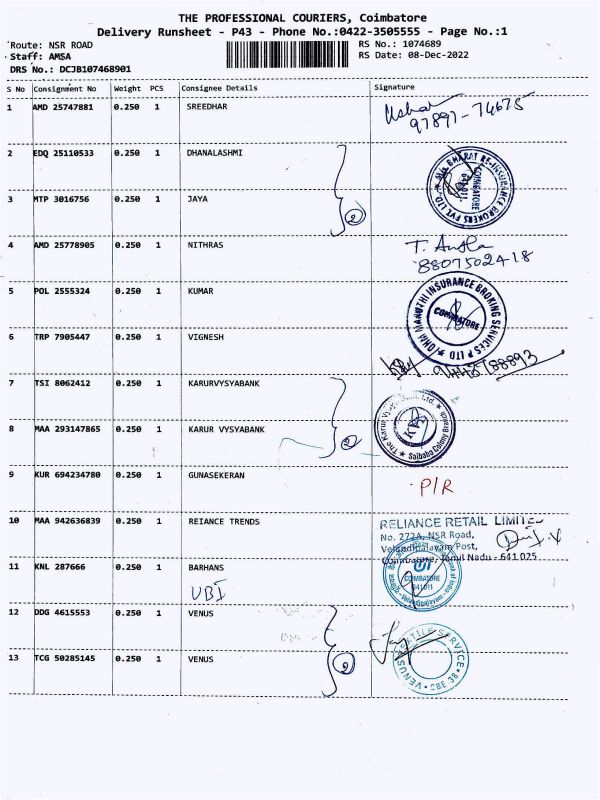 THE PROFESSIONAL COURIERS, Coimbatore
Delivery Runsheet - P43 - Phone No.:0422-3505555 - Page No.:1
Route: NSR ROAD
RS No.: 1074689
Staff: AMSA
RS Date: 08-Dec-2022
DRS No.: DCJB107468901
S No Consignment No Weight PCS Consignee Details Signature
1 AMD 25747881 0.250 1 SREEDHAR
97897-74675
2 EDQ 25110533 0.250 1 DHANALASHMI
BHARAT RE-INSURANCE BROKERS PVT. LTD.
COIMBATORE
3 MTP 3016756 0.250 1 JAYA
2
4 AMD 25778905 0.250 1 NITHRAS
8807502418
5 POL 2555324 0.250 1 KUMAR
MARUTHI INSURANCE BROKING SERVICES P LTD
COIMBATORE
6 TRP 7905447 0.250 1 VIGNESH
7 TSI 8062412 0.250 1 KARURVYSYABANK
8 MAA 293147865 0.250 1 KARUR VYSYABANK
2
The Karur Vysya Bank Ltd.
Saibaba Colony Branch
9 KUR 694234780 0.250 1 GUNASEKERAN
P/R
10 MAA 942636839 0.250 1 REIANCE TRENDS
RELIANCE RETAIL LIMITED
No. 272A, NSR Road,
Velandipalayam Post,
Coimbatore, Tamil Nadu - 641 025
11 KNL 287666 0.250 1 BARHANS
UBI
COIMBATORE
641011
12 DDG 4615553 0.250 1 VENUS
13 TCG 50285145 0.250 1 VENUS
2
VENUS TEXTILE SERVICE
CBE 38